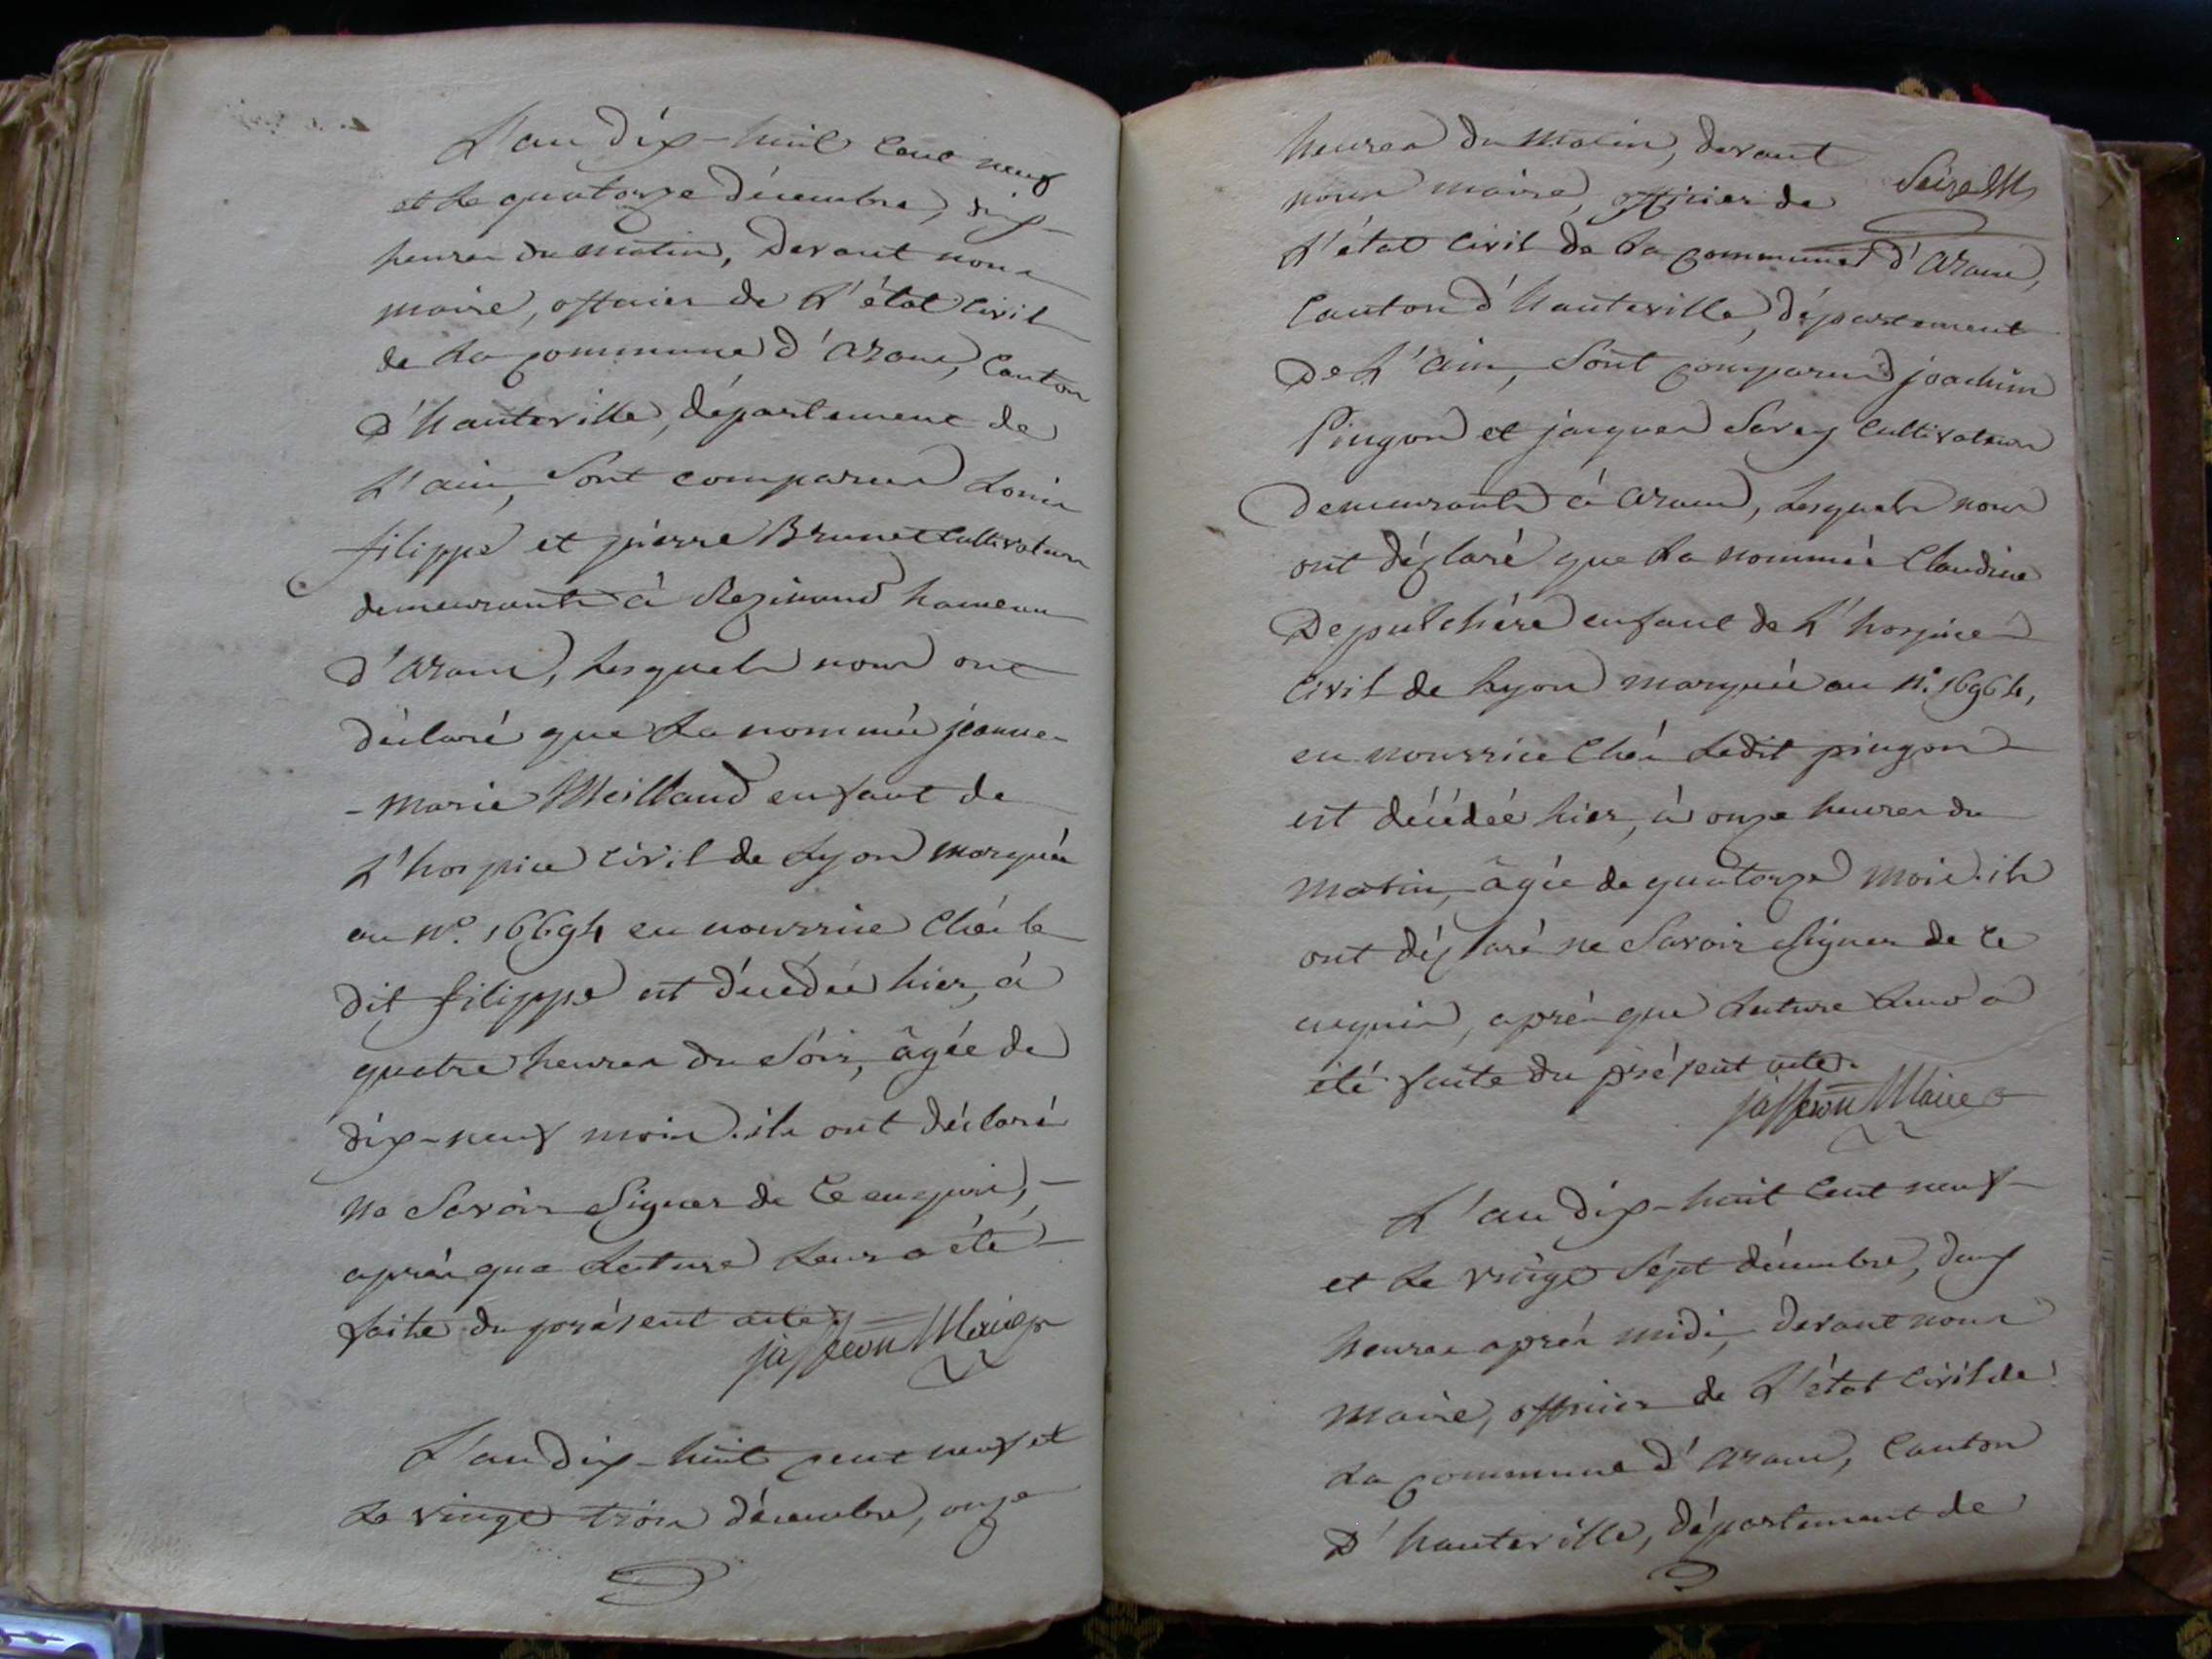 L'an dix-huit cent neuf
et le quatorze décembre, dix
heures du matin, Devant nous
maire, officier de L'état Civil
de La commune d'Aranc, Canton
d'hauteville, département de
L'ain, Sont comparus Louis
filippe et pierre Brunet Cultivateurs
demeurants à Rezinand hameau
d'Aranc, Lesquels nous ont
déclaré que La nommée jeanne-
-Marie Meilland enfant de
L'hospice Civil de Lyon marquée
au N°. 16694 en nourrice Chés le
dit filippe est décédée hier, à
quatre heures du Soir, âgée de
dix-neuf mois. ils ont déclaré
ne Savoir Signer de Ce enquis,
après que Lecture Leur a été
faite du présent acte.
jasseron Maire
L'an dix-huit cent neuf et
Le vingt trois décembre, onze
heures du Matin, devant
nous maire, officier de
Seize
L'état Civil de La commune d'Aranc,
Canton d'hauteville, département
De L'ain, Sont comparus joachim
Pingon et jacques Savey Cultivateurs
Demeurants à Aranc, Lesquels nous
ont déclaré que La nommée Claudine
Depulchére enfant de L'hospice
Civil de Lyon marquée au N°. 16964,
en nourrice Chés Ledit pingon
est décédée hier, à onze heures du
Matin, âgée de quatorze mois. ils
ont déclaré ne Savoir Signer de Ce
enquis, après que Lecture Leur a
été faite du présent acte.
jasseron Maire
L'an dix-huit Cent neuf
et Le vingt Sept décembre, deux
heures après midi, devant nous
Maire, officier de L'état Civil de
La commune d'Aranc, Canton
D'hauteville, département de